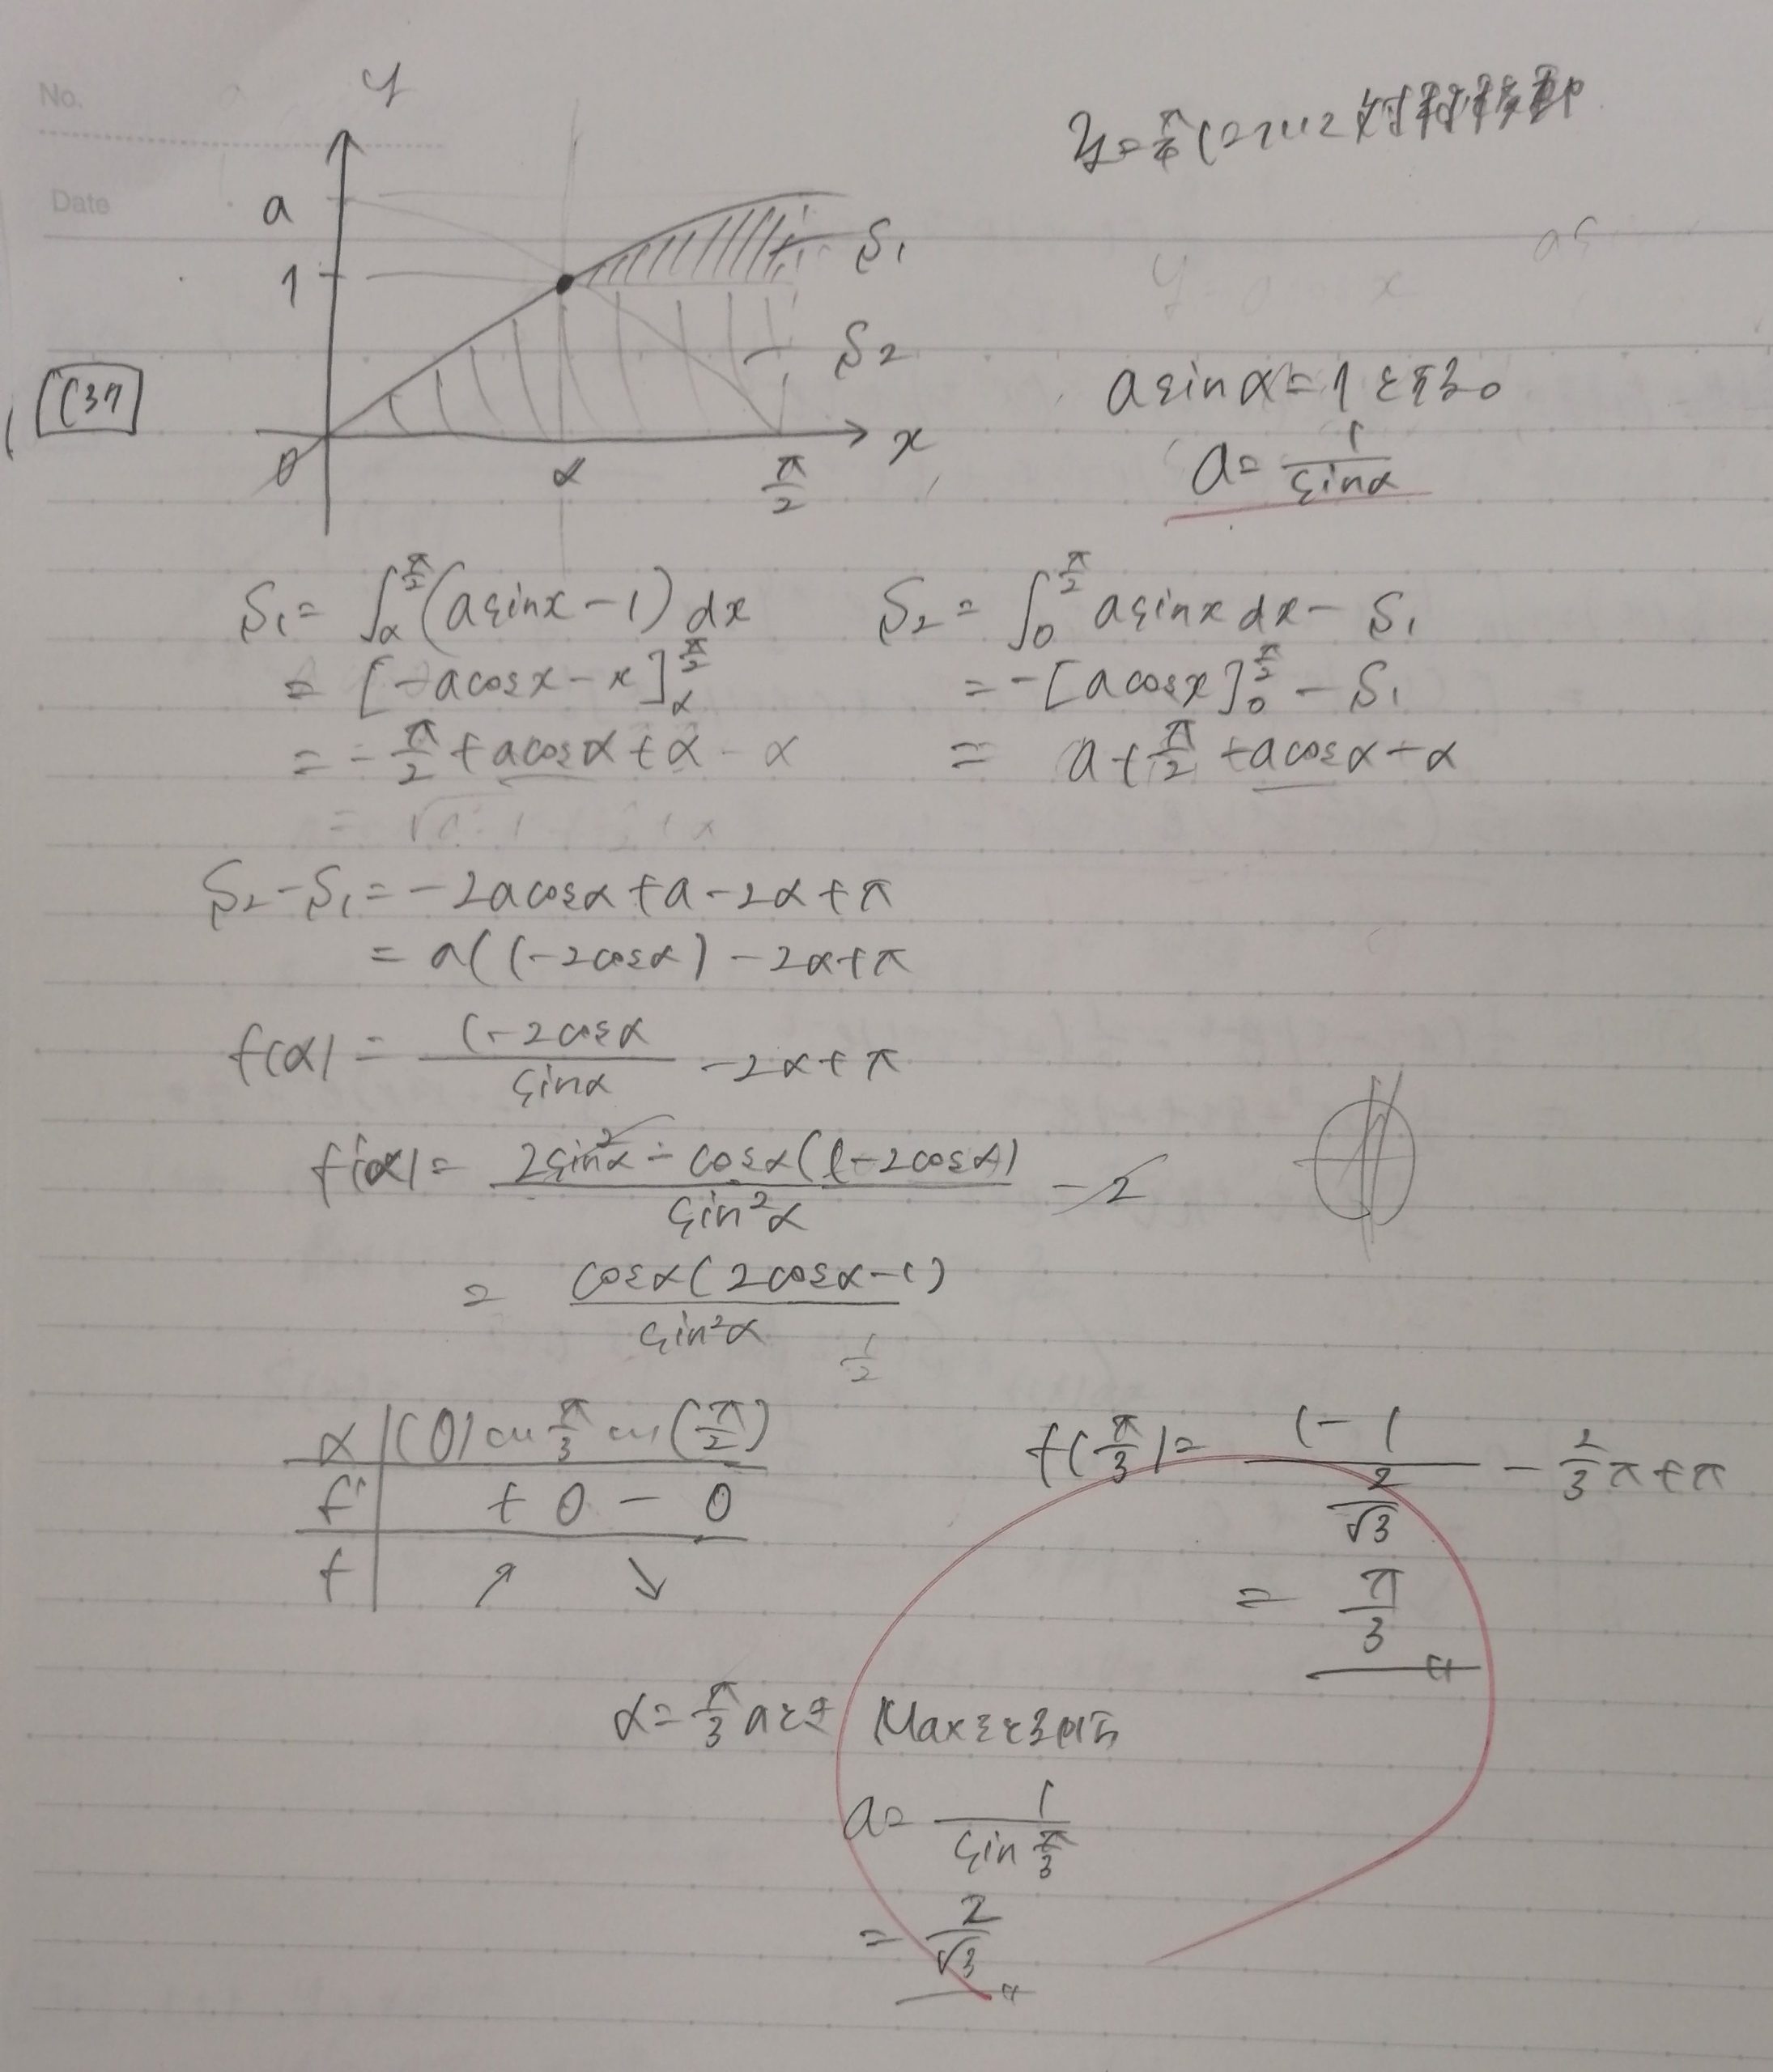 No.
Date
y
a
1
S₁
S₂
0
α
π/2
x
137
y=π/4 について対称
a sinα=1とする。
a=1/sinα
S₁=∫_α^{π/2}(a sinx-1)dx
=[-a cosx-x]_α^{π/2}
=-π/2+a cosα+α
S₂=∫_0^{π/2} a sinx dx-S₁
=-[a cosx]_0^{π/2}-S₁
=a+π/2-a cosα-α
S₂-S₁=-2a cosα+a-2α+π
=a(1-2cosα)-2α+π
f(α)=(1-2cosα)/sinα-2α+π
f'(α)=(2sin²α-cosα(1-2cosα))/sin²α-2
=cosα(2cosα-1)/sin²α
1/2
α (0) … π/3 … (π/2)
f' + 0 - 0
f ↗ ↘
f(π/3)=(1-1)/(2/√3)-2/3π+π
=π/3
α=π/3のとき Maxをとるから
a=1/sin π/3
=2/√3